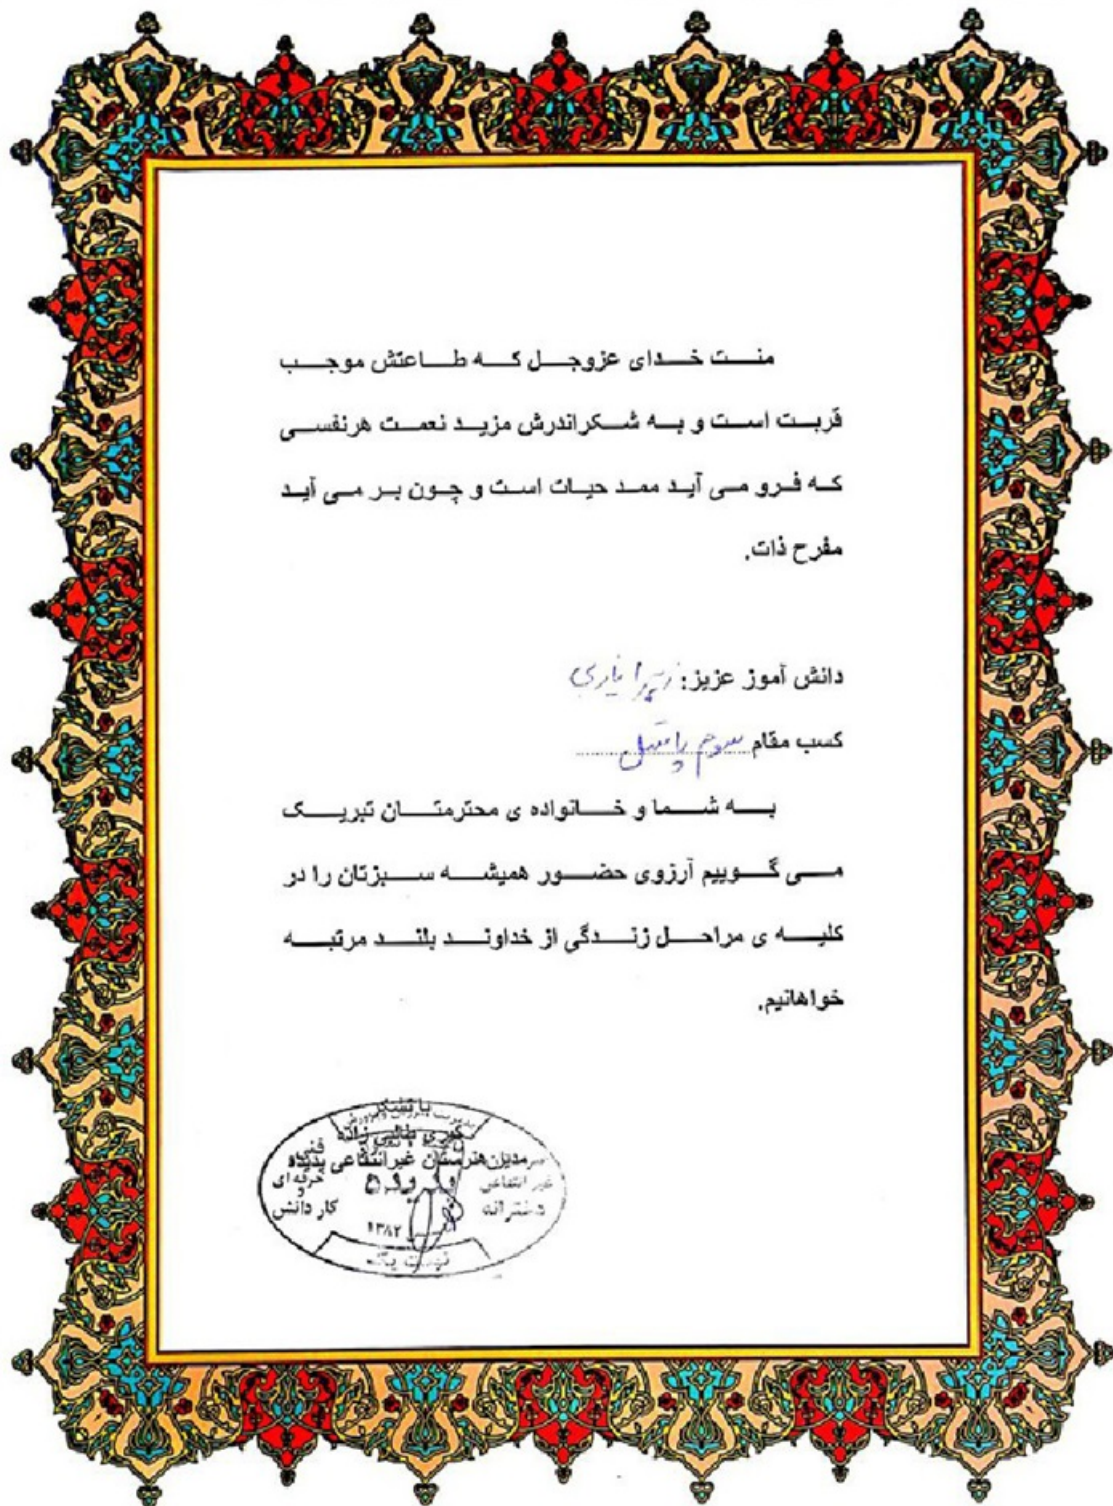 منت خدای عزوجل که طاعتش موجب
قربت است و به شکراندرش مزید نعمت هرنفسی
که فرو می آید ممد حیات است و چون بر می آید
مفرح ذات.
دانش آموز عزیز: زهرا یاری
کسب مقام سوم
به شما و خانواده ی محترمتان تبریک
می گوییم آرزوی حضور همیشه سبزتان را در
کلیه ی مراحل زندگی از خداوند بلند مرتبه
خواهانیم.
با تشکر
کبری طالبی زاده
مدیر هنرستان غیرانتفاعی پدیده
فنی
حرفه ای
و
کار دانش
غیر انتفاعی
دخترانه
۱۳۸۲